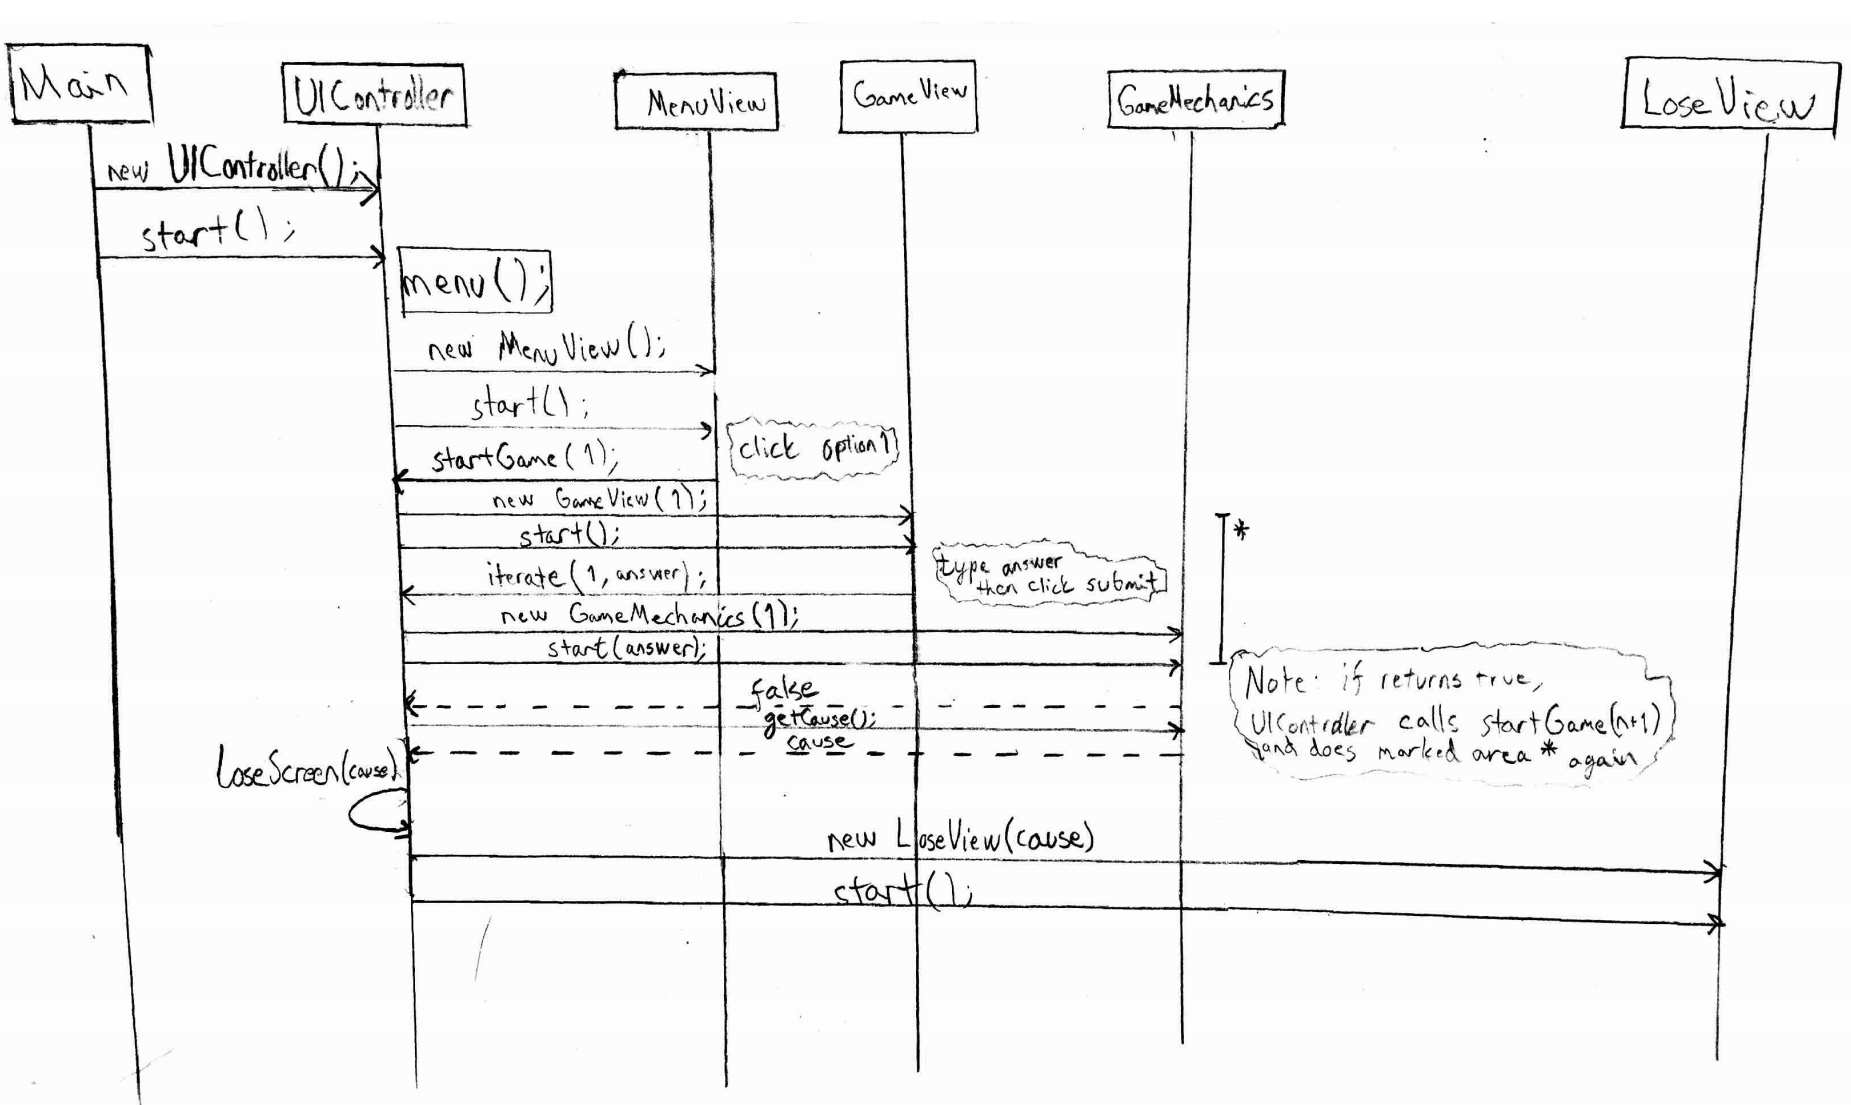 Main
UIController
MenuView
GameView
GameMechanics
LoseView
new UIController();
start();
menu();
new MenuView();
start();
click option1
startGame(1);
new GameView(1);
start();
*
type answer
then click submit
iterate(1, answer);
new GameMechanics(1);
start(answer);
Note: if returns true,
UIController calls startGame(n+1)
and does marked area * again
false
getCause();
cause
LoseScreen(cause)
new LoseView(cause)
start();